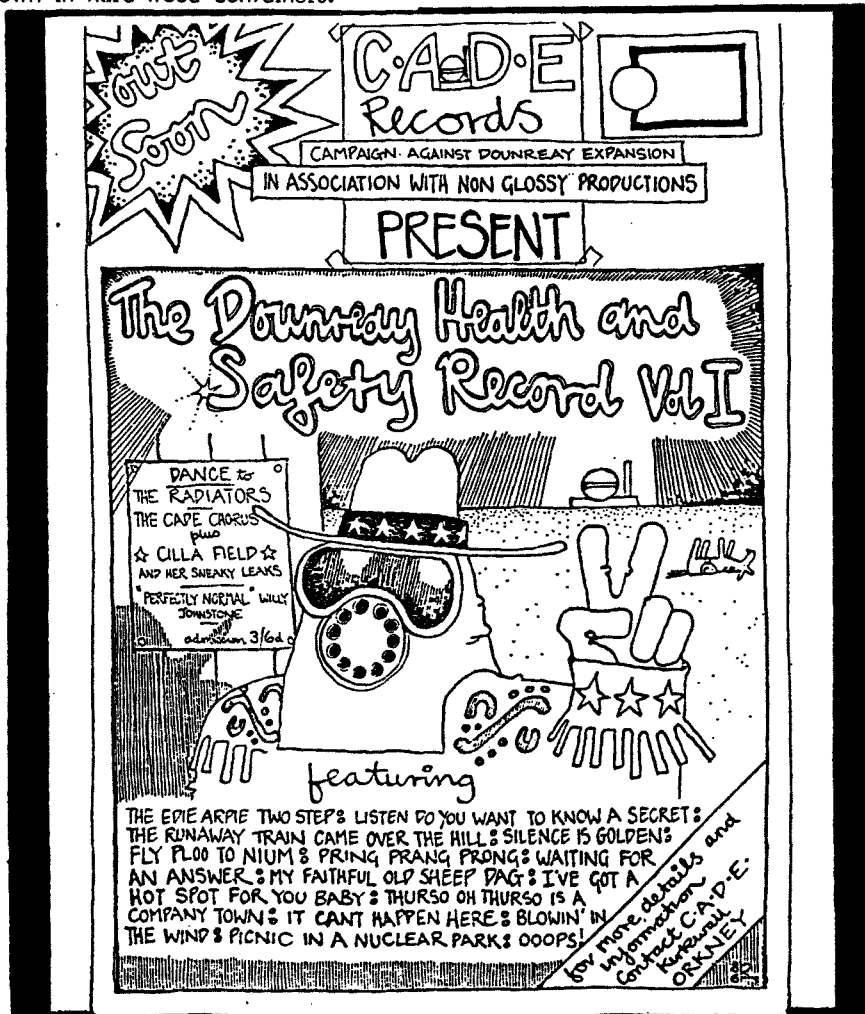 out
Soon
C·A·D·E
Records
CAMPAIGN AGAINST DOUNREAY EXPANSION
IN ASSOCIATION WITH NON GLOSSY PRODUCTIONS
PRESENT
The Dounreay Health and
Safety Record Vol I
DANCE to
THE RADIATORS
THE CAPE CHORUS
plus
☆ CILLA FIELD ☆
AND HER SNEAKY LEAKS
"PERFECTLY NORMAL" WILLY
JOHNSTONE
admission 3/6d
featuring
THE EDIE ARPIE TWO STEP: LISTEN DO YOU WANT TO KNOW A SECRET:
THE RUNAWAY TRAIN CAME OVER THE HILL: SILENCE IS GOLDEN:
FLY PLOO TO NIUM: PRING PRANG PRONG: WAITING FOR
AN ANSWER: MY FAITHFUL OLD SHEEP DAG: I'VE GOT A
HOT SPOT FOR YOU BABY: THURSO OH THURSO IS A
COMPANY TOWN: IT CANT HAPPEN HERE: BLOWIN' IN
THE WIND: PICNIC IN A NUCLEAR PARK: OOOPS!
for more details and
information
Contact C·A·D·E·
Kirkwall
ORKNEY